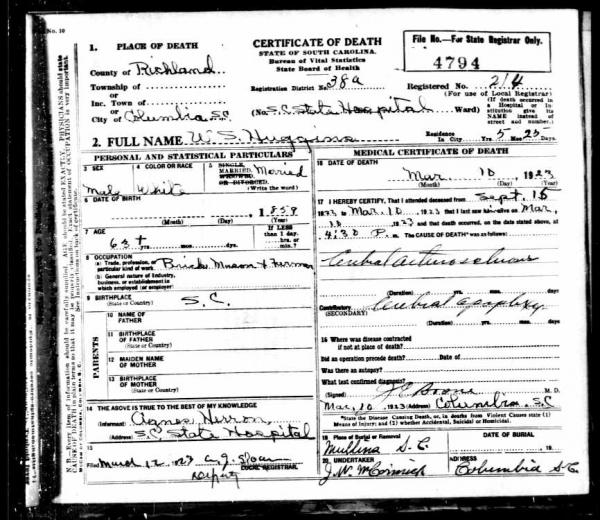 No. 10
1. PLACE OF DEATH
County of Richland
Township of
or
Inc. Town of
or
City of Columbia S.C.
CERTIFICATE OF DEATH
STATE OF SOUTH CAROLINA
Bureau of Vital Statistics
State Board of Health
Registration District No. 38a
(No. S.C. State Hospital Ward)
File No.—For State Registrar Only.
4794
Registered No. 214
(For use of Local Registrar)
(If death occurred in a Hospital or Institution give its NAME instead of street and number.)
2. FULL NAME W. S. Huggins
Residence In City Yrs. 5 Mos. 25 Days.
PERSONAL AND STATISTICAL PARTICULARS
3 SEX Male
4 COLOR OR RACE White
5 SINGLE, MARRIED, WIDOWED OR DIVORCED. Married
(Write the word)
6 DATE OF BIRTH
1859
(Month) (Day) (Year)
7 AGE
63 + yrs. mos. days.
IF LESS than 1 day, hrs. or min.?
8 OCCUPATION
(a) Trade, profession, or particular kind of work Brick Mason & Farmer
(b) General nature of Industry, business, or establishment in which employed (or employer)
9 BIRTHPLACE S.C.
(State or Country)
PARENTS
10 NAME OF FATHER
11 BIRTHPLACE OF FATHER
(State or Country)
12 MAIDEN NAME OF MOTHER
13 BIRTHPLACE OF MOTHER
(State or Country)
14 THE ABOVE IS TRUE TO THE BEST OF MY KNOWLEDGE
(Informant) Agnes Herron
(Address) S.C. State Hospital
15
Filed March 12 1923 A. J. Sloan
LOCAL REGISTRAR.
Deputy
MEDICAL CERTIFICATE OF DEATH
16 DATE OF DEATH
Mar. 10, 1923
(Month) (Day) (Year)
17 I HEREBY CERTIFY, That I attended deceased from Sept. 16
1922 to Mar. 10 1923 that I last saw him alive on Mar.
10 1923 and that death occurred, on the date stated above, at
4:30 P. m. The CAUSE OF DEATH* was as follows:
Cerebral arteriosclerosis
(Duration) yrs. mos. days
Contributory Cerebral apoplexy
(SECONDARY)
(Duration) yrs. mos. days
18 Where was disease contracted
if not at place of death?
Did an operation precede death? Date of
Was there an autopsy?
What test confirmed diagnosis?
(Signed) M. D.
Mar. 10 1923 (Address) Columbia, S.C.
*State the Disease Causing Death, or, in deaths from Violent Causes state (1) Means of Injury; and (2) whether Accidental, Suicidal or Homicidal.
19 Place of Burial or Removal
Mullins S.C.
DATE OF BURIAL
19
20 UNDERTAKER
J. W. McCormick
ADDRESS
Columbia S.C.